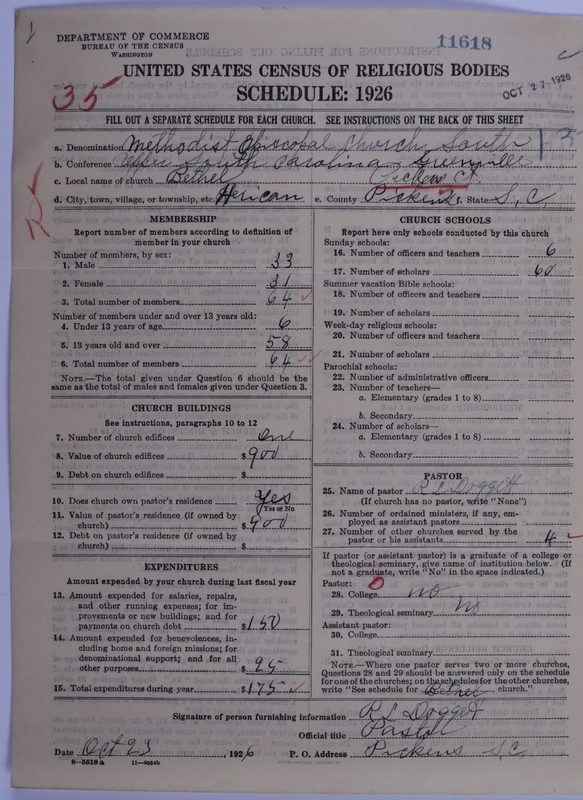 DEPARTMENT OF COMMERCE
BUREAU OF THE CENSUS
WASHINGTON
11618
OCT 27 1926
UNITED STATES CENSUS OF RELIGIOUS BODIES
SCHEDULE: 1926
35
FILL OUT A SEPARATE SCHEDULE FOR EACH CHURCH. SEE INSTRUCTIONS ON THE BACK OF THIS SHEET
a. Denomination Methodist Episcopal Church, South
b. Conference Upper South Carolina Greenville
c. Local name of church Bethel Pickens Ct.
d. City, town, village, or township, etc. e. County Pickens f. State S. C.
MEMBERSHIP
Report number of members according to definition of member in your church
Number of members, by sex:
1. Male 33
2. Female 31
3. Total number of members 64
Number of members under and over 13 years old:
4. Under 13 years of age 6
5. 13 years old and over 58
6. Total number of members 64
NOTE.—The total given under Question 6 should be the same as the total of males and females given under Question 3.
CHURCH BUILDINGS
See instructions, paragraphs 10 to 12
7. Number of church edifices One
8. Value of church edifices $900
9. Debt on church edifices $
10. Does church own pastor's residence Yes
Yes or No
11. Value of pastor's residence (if owned by church) $900
12. Debt on pastor's residence (if owned by church) $
EXPENDITURES
Amount expended by your church during last fiscal year
13. Amount expended for salaries, repairs, and other running expenses; for improvements or new buildings; and for payments on church debt $150
14. Amount expended for benevolences, including home and foreign missions; for denominational support; and for all other purposes $25
15. Total expenditures during year $175
CHURCH SCHOOLS
Report here only schools conducted by this church
Sunday schools:
16. Number of officers and teachers 6
17. Number of scholars 60
Summer vacation Bible schools:
18. Number of officers and teachers
19. Number of scholars
Week-day religious schools:
20. Number of officers and teachers
21. Number of scholars
Parochial schools:
22. Number of administrative officers
23. Number of teachers—
a. Elementary (grades 1 to 8)
b. Secondary
24. Number of scholars—
a. Elementary (grades 1 to 8)
b. Secondary
PASTOR
25. Name of pastor R L Doggett
(If church has no pastor, write "None")
26. Number of ordained ministers, if any, employed as assistant pastors
27. Number of other churches served by the pastor or his assistants 4
If pastor (or assistant pastor) is a graduate of a college or theological seminary, give name of institution below. (If not a graduate, write "No" in the space indicated.)
Pastor:
28. College No
29. Theological seminary No
Assistant pastor:
30. College
31. Theological seminary
NOTE.—Where one pastor serves two or more churches, Questions 28 and 29 should be answered only on the schedule for one of the churches; on the schedules for the other churches, write "See schedule for Bethel church."
Signature of person furnishing information R L Doggett
Official title Pastor
Date Oct 23, 1926 P. O. Address Pickens S.C.
8—5518a 11—9054b